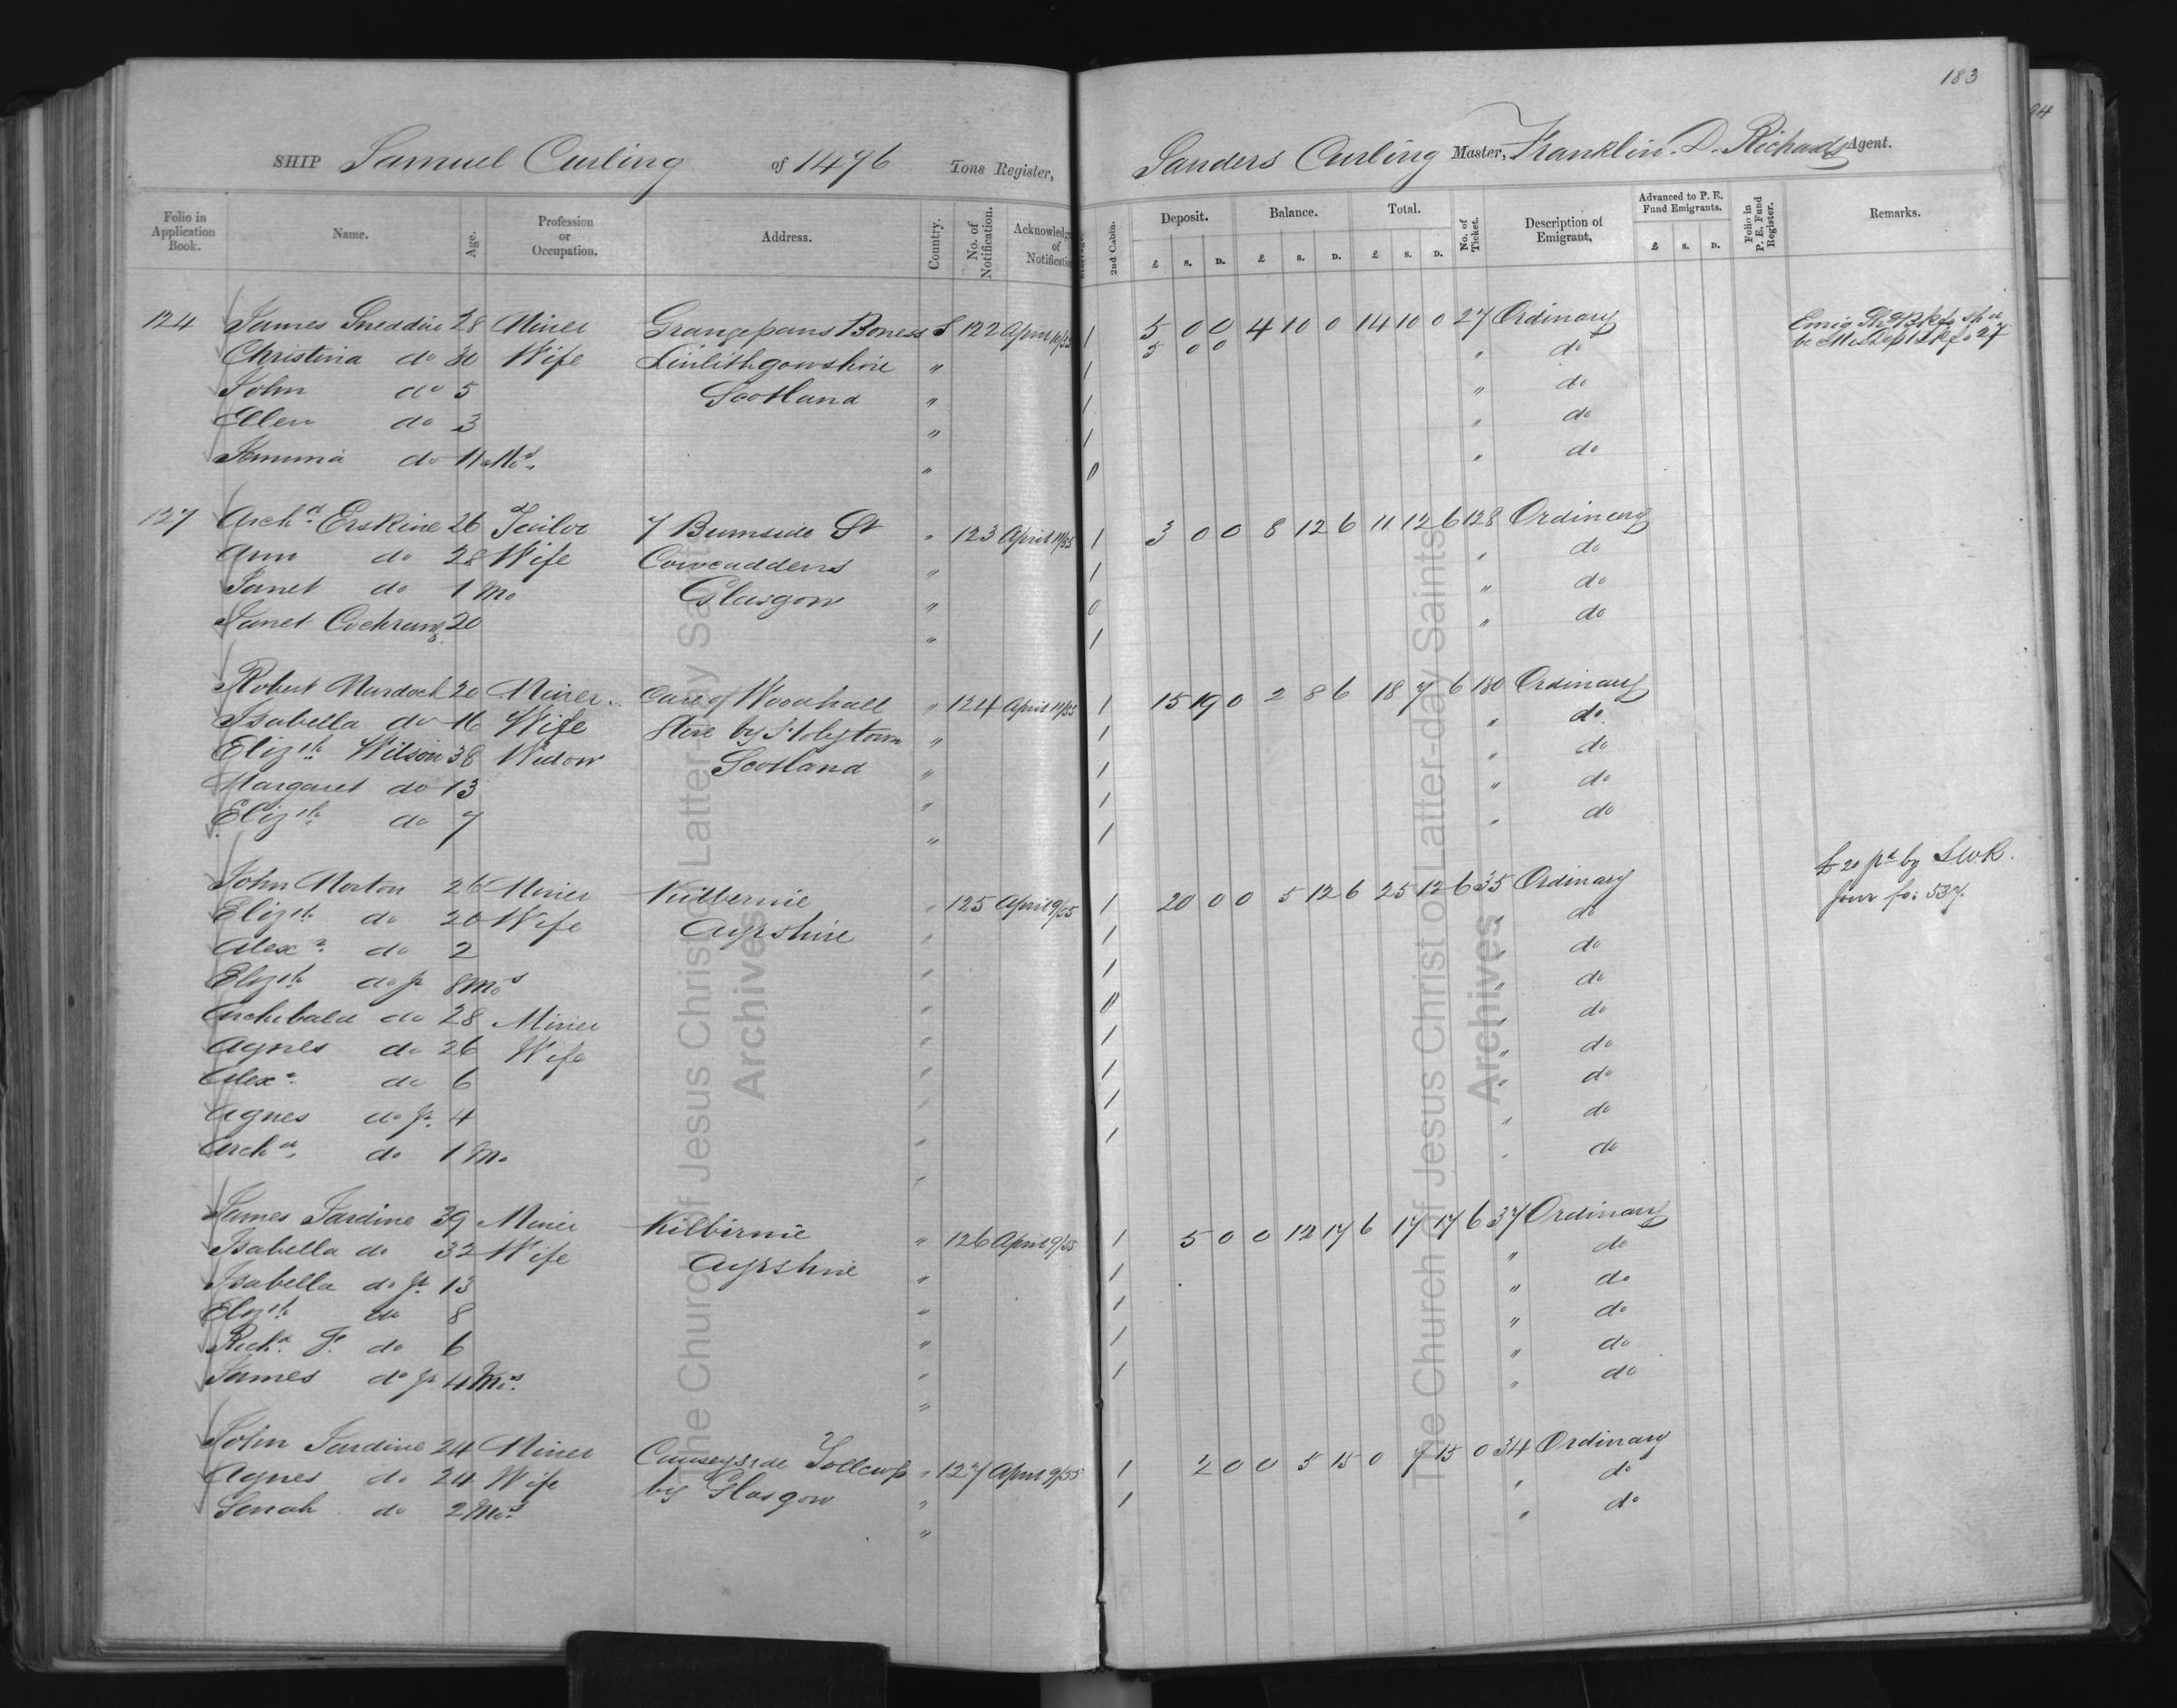 183
SHIP Samuel Curling of 1476 Tons Register, Sanders Curling Master, Franklin. D. Richards Agent.
Folio in Application Book. Name. Age. Profession or Occupation. Address. Country. No. of Notification. Acknowledg of Notificati 2nd Cabin. Deposit. £ s. D. Balance. £ s. D. Total. £ s. D. No. of Ticket. Description of Emigrant. Advanced to P. E. Fund Emigrants. £ s. D. Folio in P. E. Fund Register. Remarks.
124 James Sneddin 28 Miner Grangepans Boness S 122 April 10/55 1 5 0 0 4 10 0 14 10 0 27 Ordinary
5 0 0
Christina do 30 Wife Linlithgowshire " 1 " do
John do 5 Scotland " 1 " do
Ellen do 3 " 1 " do
Jemima do 11 Mos. " 0 " do
127 Archd. Erskine 26 Tailor 7 Burnside St " 123 April 11/55 1 3 0 0 8 12 6 11 12 6 128 Ordinary
Ann do 28 Wife Cowcaddens " 1 " do
Janet do 1 Mo Glasgow " 0 " do
Janet Cochrane 20 " 1 " do
Robert Murdoch 20 Miner Care of Woodhall " 124 April 11/55 1 15 19 0 2 8 6 18 7 6 180 Ordinary
Isabella do 16 Wife Store by Holytown " 1 " do
Elizth. Wilson 38 Widow Scotland " 1 " do
Margaret do 13 " 1 " do
Elizth. do 7 " 1 " do
John Morton 26 Miner Kilbernie " 125 April 9/55 1 20 0 0 5 12 6 25 12 6 35 Ordinary £20 pd by S.W.R.
Elizth. do 20 Wife Ayrshire " 1 " do Jour fo: 537.
Alexr. do 2 " 1 " do
Elizth do jr 8 Mos " 0 " do
Archibald do 28 Miner " 1 " do
Agnes do 26 Wife " 1 " do
Alexr. do 6 " 1 " do
Agnes do jr. 4 " 1 " do
Archd. do 1 Mo " " do
James Jardine 39 Miner Kilbirnie " 126 April 9/55 1 5 0 0 12 17 6 17 17 6 37 Ordinary
Isabella do 32 Wife Ayrshire " 1 " do
Isabella do jr 13 " 1 " do
Elizth do 8 " 1 " do
Richd. F. do 6 " 1 " do
James do jr 4 Mos. " " do
John Jardine 24 Miner Causeyside Tollcross " 127 April 9/55 1 2 0 0 5 15 0 7 15 0 34 Ordinary
Agnes do 24 Wife by Glasgow " 1 " do
do 2 Mos " " do
The Church of Jesus Christ of Latter-day Saints
Archives
The Church of Jesus Christ of Latter-day Saints
Archives